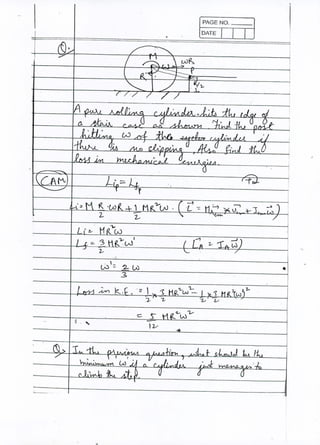 PAGE NO.
DATE
Q.
M
ωR
ω
P
R
R/2
A pure rolling cylinder hits the edge of
a stair case as shown. Find the post
hitting ω of the system cylinder if
there is no slipping. Also find the
loss in mechanical energies.
CAM
Lip = Lfp
Li = M R ωR + 1/2 MR²ω
Li = MR²ω
Lf = 3/2 MR²ω'
ω' = 2/3 ω
Loss in K.E. = 1/2 × 3/2 MR²ω² - 1/2 × 3/2 MR²(ω')²
= 5/12 MR²ω²
Q. In the previous question, what should be the
minimum ω if a cylinder just manages to
climb the step.